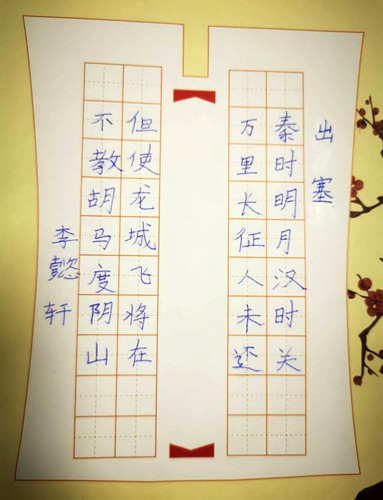 出塞
秦时明月汉时关
万里长征人未还
但使龙城飞将在
不教胡马度阴山
李懿轩